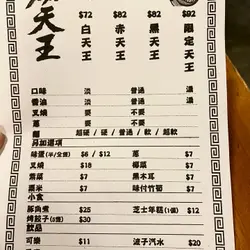 天王
$72 $82 $82 $92
白天王 赤天王 黑天王 限定天王
口味 淡 普通 濃
醬油 淡 普通 濃
叉燒 要 不要
蔥 要 不要
麵 超硬 / 硬 / 普通 / 軟 / 超軟
另加選項
味蛋(半/全隻) $6 / $12 蔥 $7
叉燒 $18 椰菜 $7
紫菜 $7 黑木耳 $7
粟米 $7 味付竹筍 $7
小食
豚角煮 $25 芝士年糕(1個) $12
燒餃子(5隻) $30
飲品
可樂 $11 波子汽水 $20